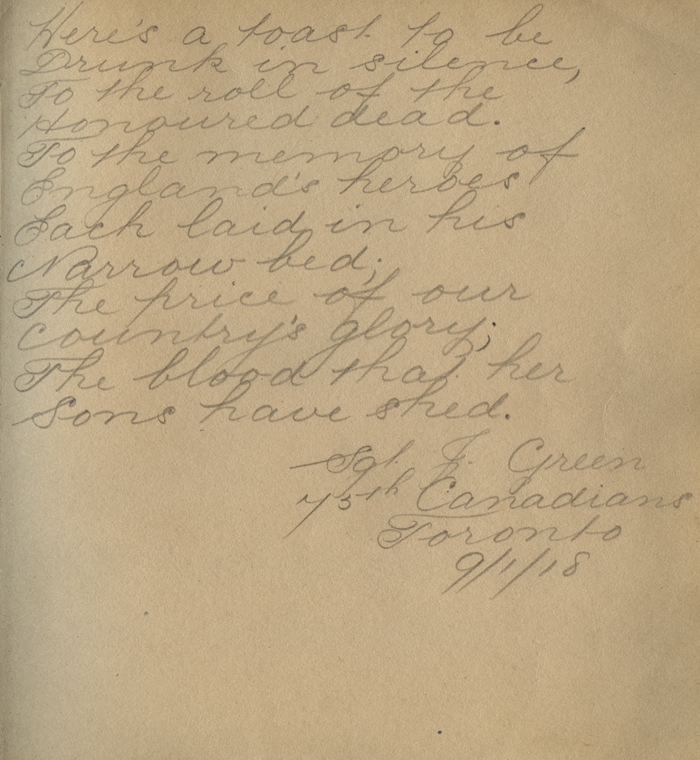 Here's a toast to be
Drunk in silence,
To the roll of the
Honoured dead.
To the memory of
England's heroes
Each laid in his
Narrow bed;
The price of our
Country's glory;
The blood that her
Sons have shed.
Sgt J. Green
75th Canadians
Toronto
9/1/18